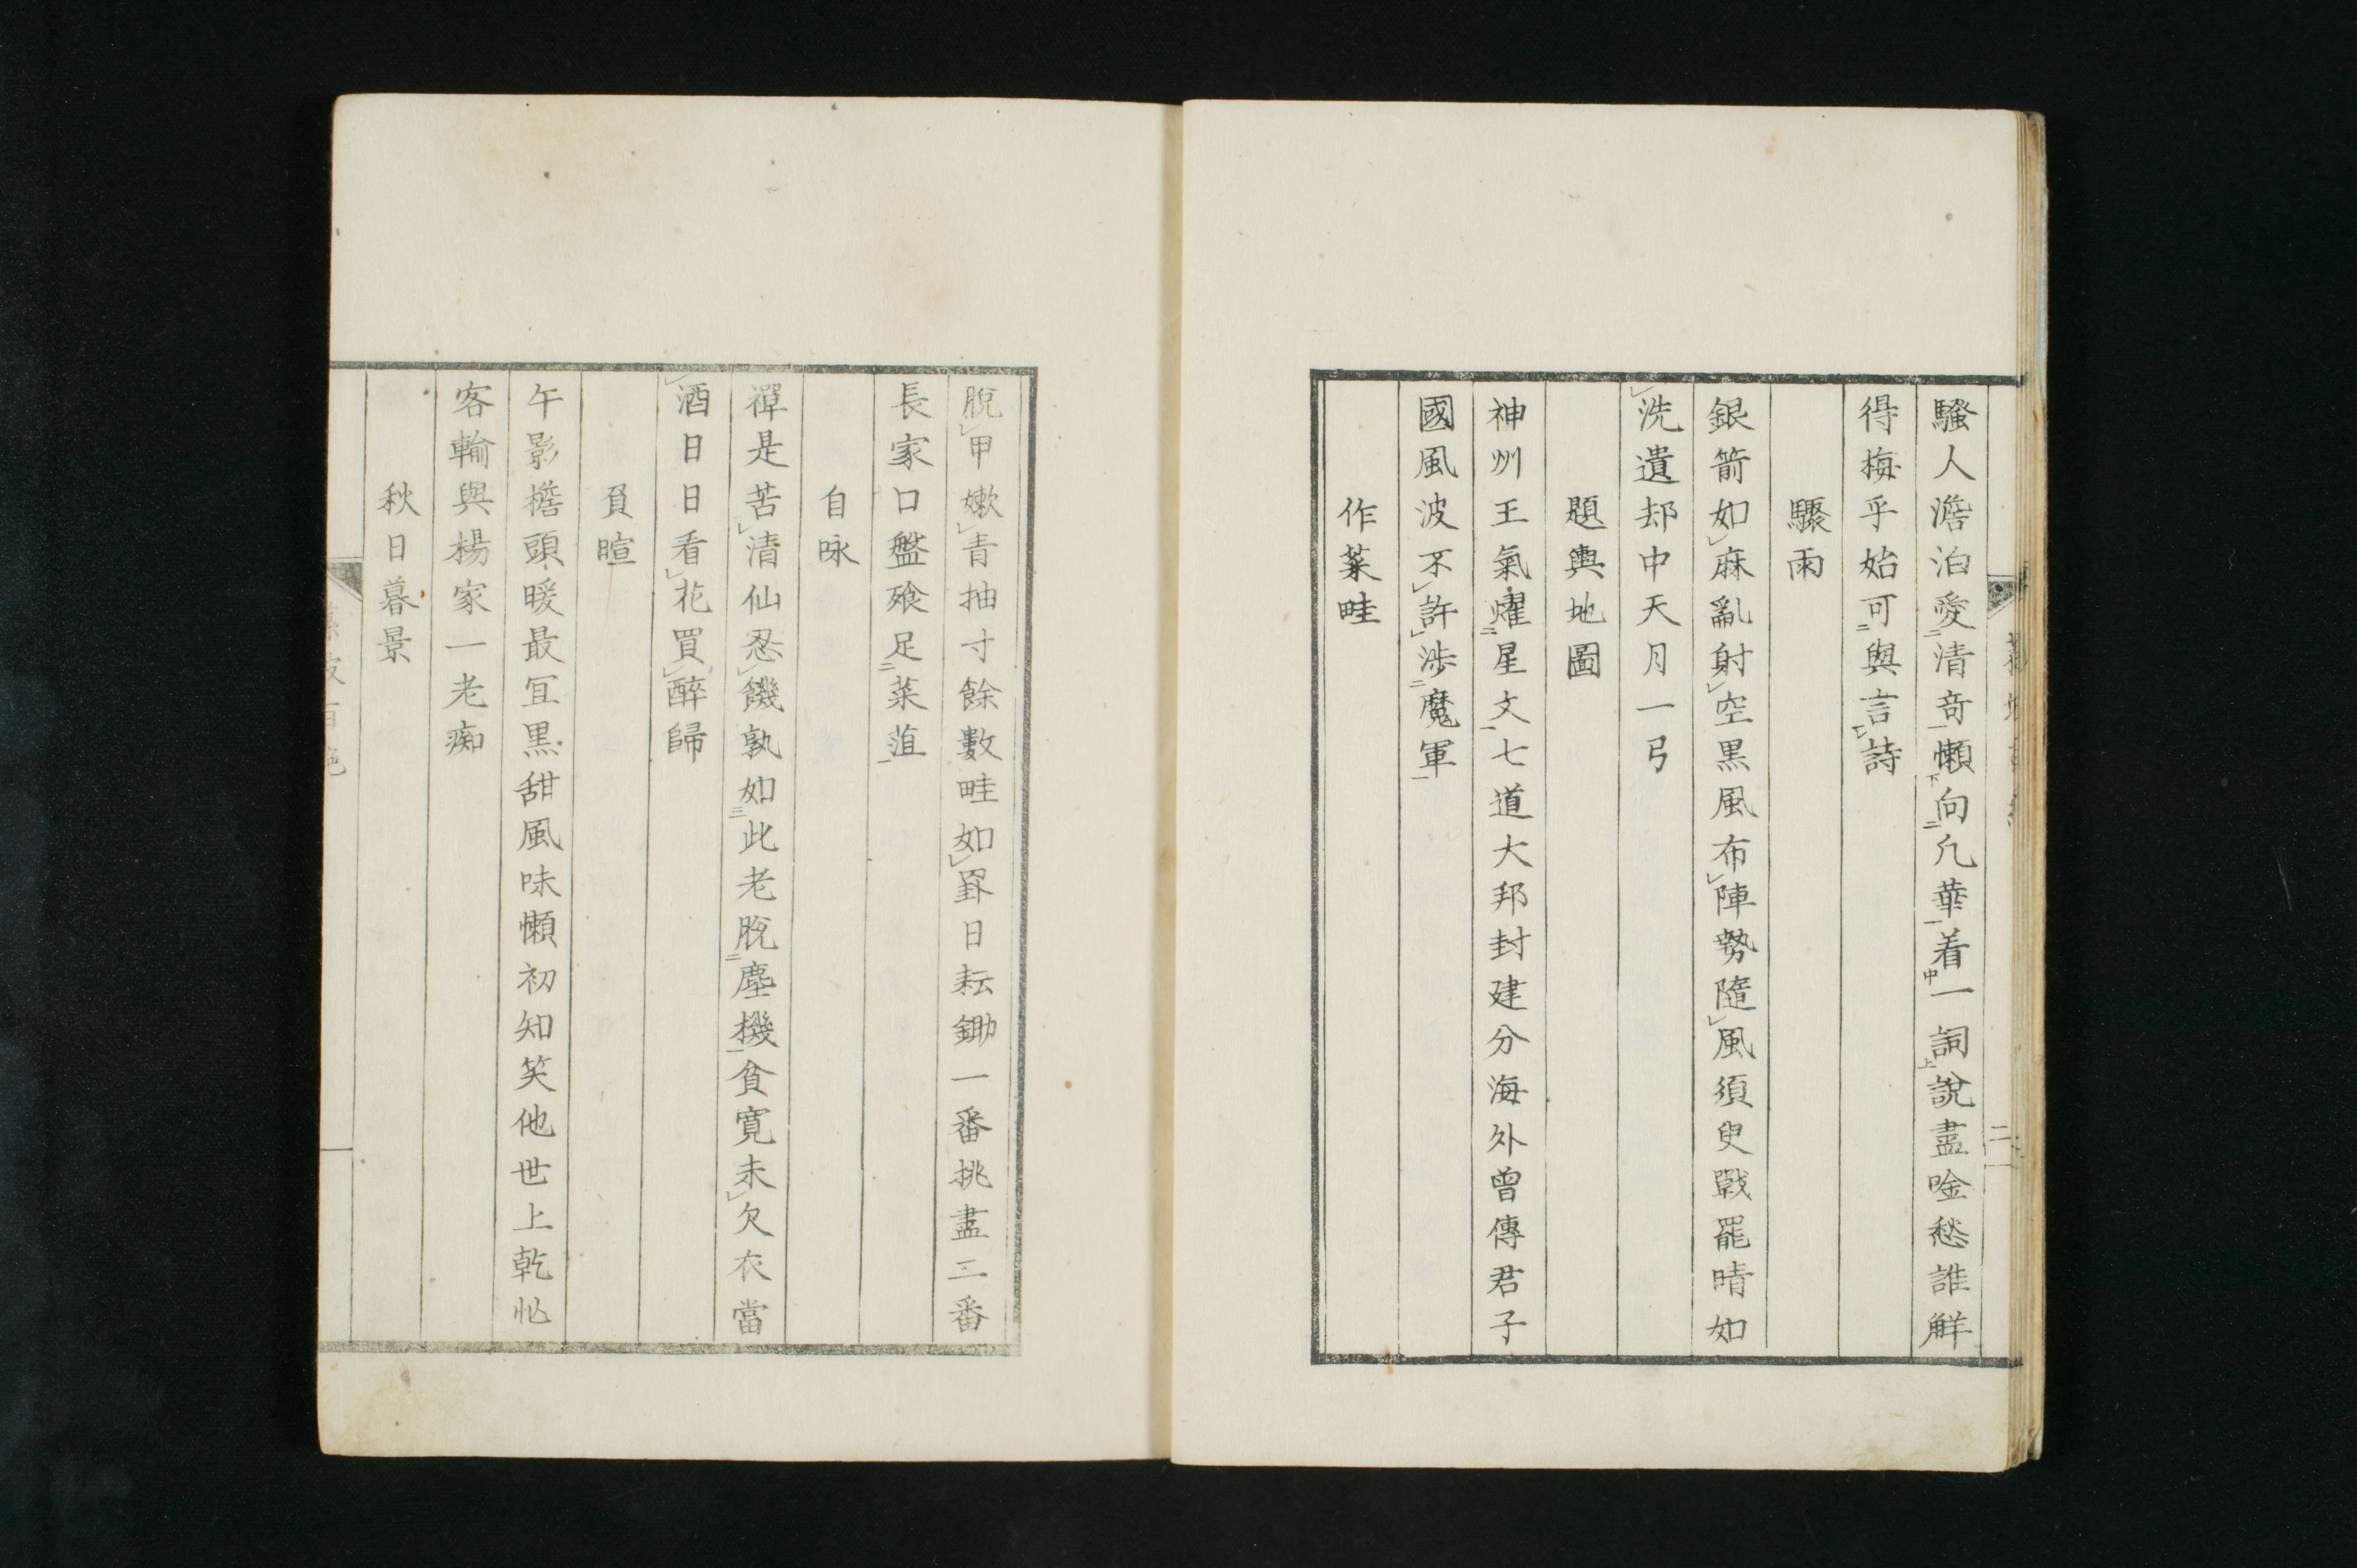 騷人澹泊愛清竒懶向凢華着一詞說盡唫愁誰觧
得梅乎始可與言詩
驟雨
銀箭如麻亂射空黒風布陣勢隨風須臾戰罷晴如
洗遺却中天月一弓
題輿地圖
神州王氣燿星文七道大邦封建分海外曽傳君子
國風波不許渉魔軍
作菜畦
脫甲嫰青抽寸餘數畦如罫日耘鋤一番挑盡二番
長家口盤飱足菜葅
自咏
禪是苦清仙忍饑孰如此老脫塵機貧寛未欠衣當
酒日日看花買醉歸
負暄
午影檐頭暖最冝黒甜風味懶初知笑他世上乾忙
客輸與楊家一老痴
秋日暮景
二